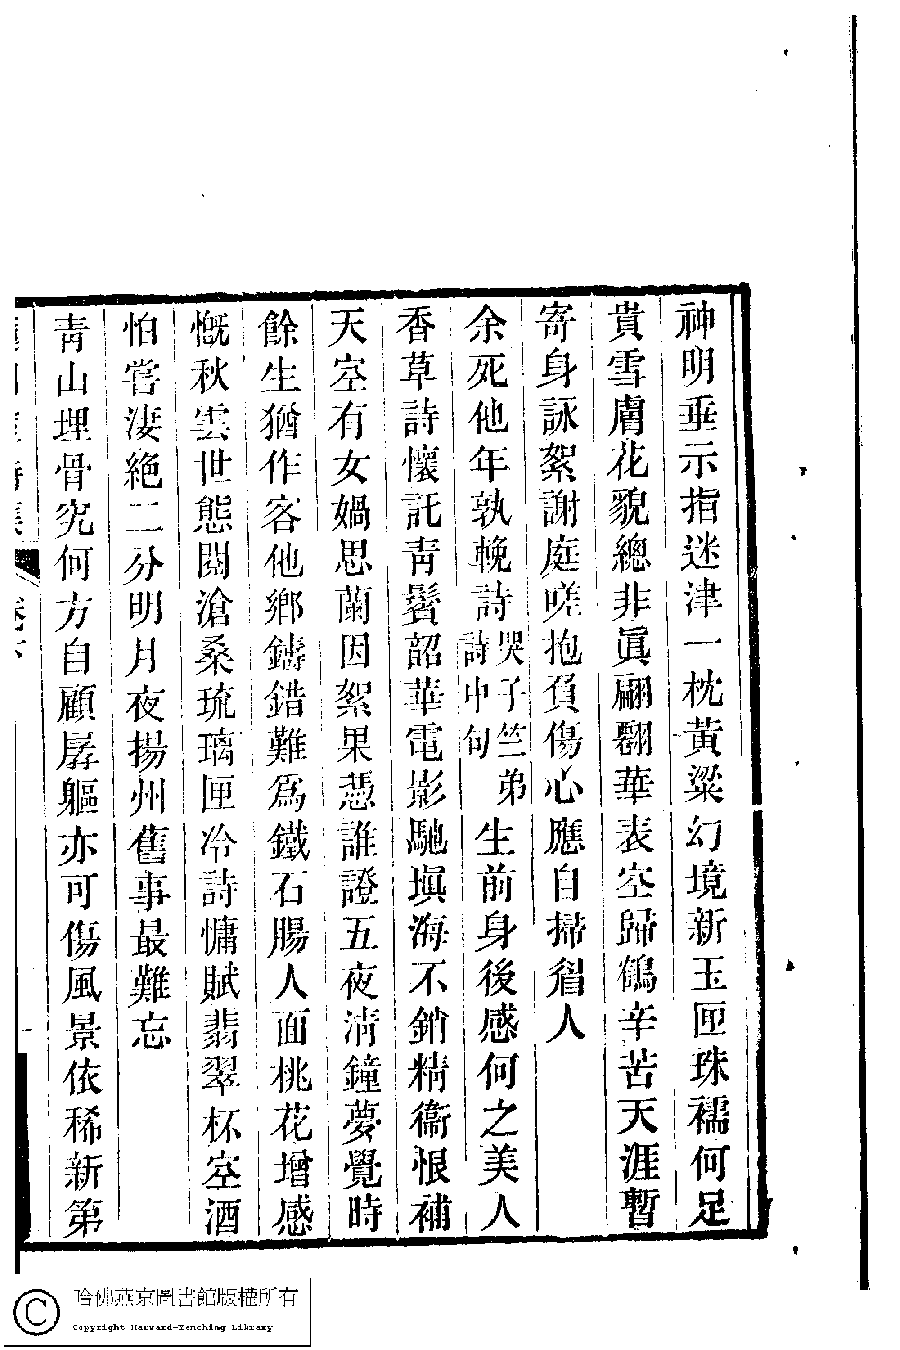 神明垂示指迷津一枕黃粱幻境新玉匣珠襦何足
貴雪膚花貌總非眞翩翻華表空歸鶴辛苦天涯暫
寄身詠絮謝庭嗟抱負傷心應自掃眉人
余死他年孰輓詩哭子竺弟詩中句生前身後感何之美人
香草詩懷託靑鬢韶華電影馳塡海不銷精衞恨補
天空有女媧思蘭因絮果憑誰證五夜淸鐘夢覺時
餘生猶作客他鄉鑄錯難爲鐵石腸人面桃花增感
慨秋雲世態閱滄桑琉璃匣冷詩慵賦翡翠杯空酒
怕嘗淒絕二分明月夜揚州舊事最難忘
靑山埋骨究何方自顧孱軀亦可傷風景依稀新第
卷下
哈佛燕京圖書館版權所有
Copyright Harvard-Yenching Library